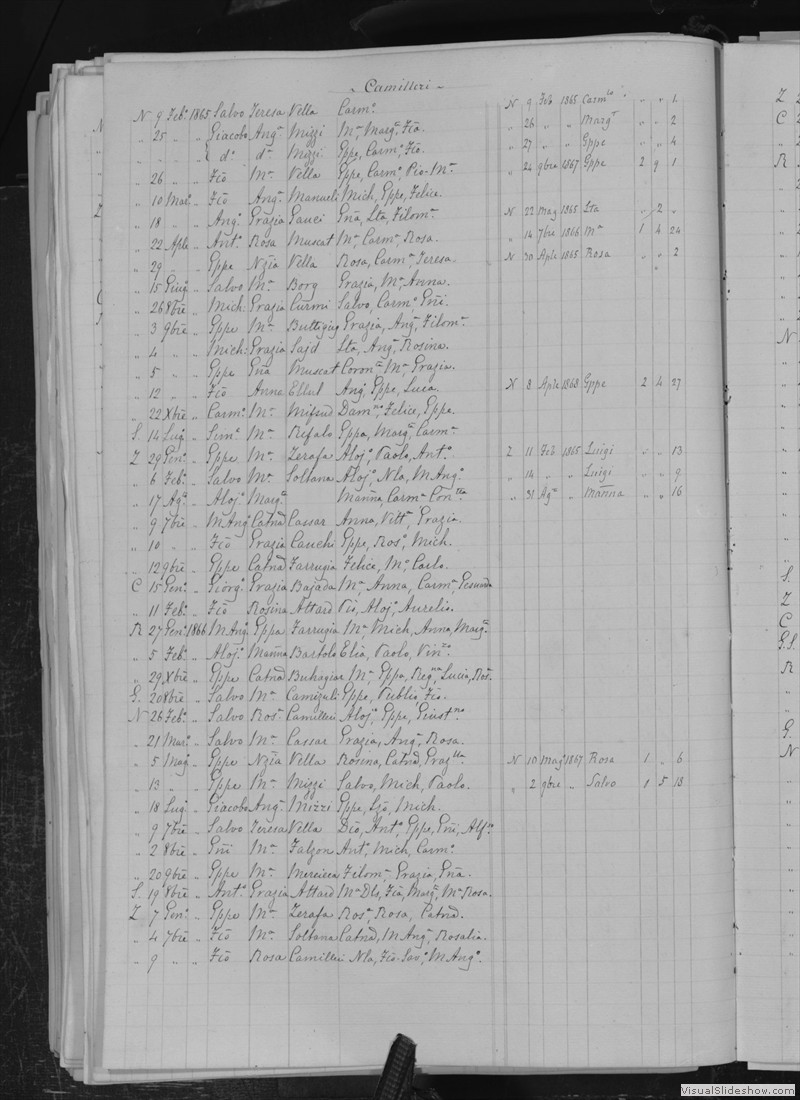 Camilleri
N 9 Feb.o 1865 Salvo Teresa Vella Carm.o N 9 Feb 1865 Carm.la " " 1
" 25 " " Giacobo Ang.a Mizzi M.a, Marg.a, Fio. " 26 " " Marg.a " " 2
" " " d.o d.a Mizzi Gppe, Carm.o, Fio. " 27 " " Gppe " " 4
" 26 " " Fio M.a Vella Gppe, Carm.o, Pio-M.a " 24 9bre 1867 Gppe 2 9 1
" 10 Mar.o " Fio Ang.a Manueli Mich, Gppe, Felice.
" 18 " " Ang.o Grazia Gauci Gña, Lta, Filom.a N 22 Mag 1865 Lta " 2 "
" 22 Aple " Ant.o Rosa Muscat M.a, Carm.a, Rosa. " 14 7bre 1866 M.a 1 4 24
" 29 " " Gppe Nzia Vella Rosa, Carm.a, Teresa. N 30 Aple 1865 Rosa " " 2
" 15 Giug.o " Salvo M.a Borg Grazia, M.a, Anna.
" 26 8bre " Mich: Grazia Curmi Salvo, Carm.o, Gñi.
" 3 9bre " Gppe M.a Buttigieg Grazia, Ang.a, Filom.a
" 4 " " Mich: Grazia Sajd Lta, Ang.a, Rosina.
" 5 " " Gppe Gña Muscat Coron.a, M.a, Grazia.
" 12 " " Fio Anne Ellul Ang.o, Gppe, Luca. N 8 Aple 1868 Gppe 2 4 27
" 22 Xbre " Carm.o M.a Mifsud Dam.no, Felice, Gppe.
S. 14 Lug.o " Sim.e M.a Refalo Gppa, Marg.a, Carm.a
Z 29 Gen.o " Gppe M.a Zerafa Aloj.o, Paolo, Ant.o Z 11 Feb 1865 Luigi " " 13
" 6 Feb.o " Salvo M.a Soltana Aloj.o, Nla, M Ang.o " 14 " " Luigi " " 9
" 17 Ag.o " Aloj.o Marg.a Mariña, Carm.a, Con.tta " 31 Ag.o " Mariña " " 16
" 9 7bre " M Ang.o Catña Cassar Anna, Vitt.a, Grazia.
" 10 " " Fio Grazia Cauchi Gppe, Ros.o, Mich.
" 12 9bre " Gppe Catña Farrugia Felice, M.a, Carlo.
C 15 Gen.o " Giorg.o Grazia Bajada M.a, Anna, Carm.a, Gesualda
" 11 Feb.o " Fio Rosina Attard Pio, Aloj.o, Aurelio.
R 27 Gen.o 1866 M Ang.o Gppa Farrugia M.a, Mich, Anna, Marg.a
" 5 Feb.o " Aloj.o Mariña Bartolo Elia, Paolo, Vin.zo
" 29 Xbre " Gppe Catña Buhagiar M.a, Gppa, Reg.na, Lucia, Ros.a
G. 20 8bre " Salvo M.a Camizuli Gppe, Publio, Fio.
N 26 Feb.o " Salvo Ros.a Camilleri Aloj.o, Gppe, Giust.no
" 21 Mar.o " Salvo M.a Cassar Grazia, Ang.a, Rosa.
" 5 Mag.o " Gppe Nzia Vella Rosina, Catña, Graz.lla N 10 Mag.o 1867 Rosa 1 " 6
" 13 " " Gppe M.a Mizzi Salvo, Mich, Paolo. " 2 9bre " Salvo 1 5 18
" 18 Lug.o " Giacobo Ang.a Mizzi Gppe, Gjo, Mich.
" 9 7bre " Salvo Teresa Vella Dio, Ant.o, Gppe, Gñi, Alf.o
" 2 8bre " Gñi M.a Falzon Ant.o, Mich, Carm.o
" 20 9bre " Gppe M.a Mercieca Filom.a, Grazia, Gña.
S. 19 8bre " Ant.o Grazia Attard M.a Dls, Fia, Marg.a, M.a Rosa.
Z 7 Gen.o " Gppe M.a Zerafa Ros.a, Rosa, Catña.
" 4 7bre " Fio M.a Soltana Catña, M Ang.a, Rosalia.
" 9 " " Fio Rosa Camilleri Nla, Fio-Sav.o, M Ang.o
VisualSlideshow.com